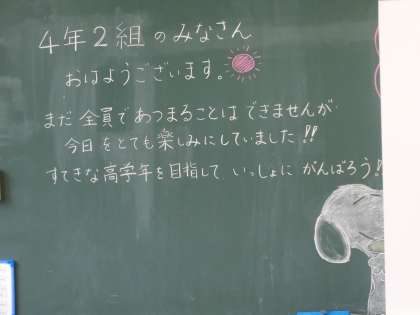 4年2組のみなさん
おはようございます。
まだ全員であつまることはできませんが
今日をとても楽しみにしていました!!
すてきな高学年を目指して いっしょに がんばろう!